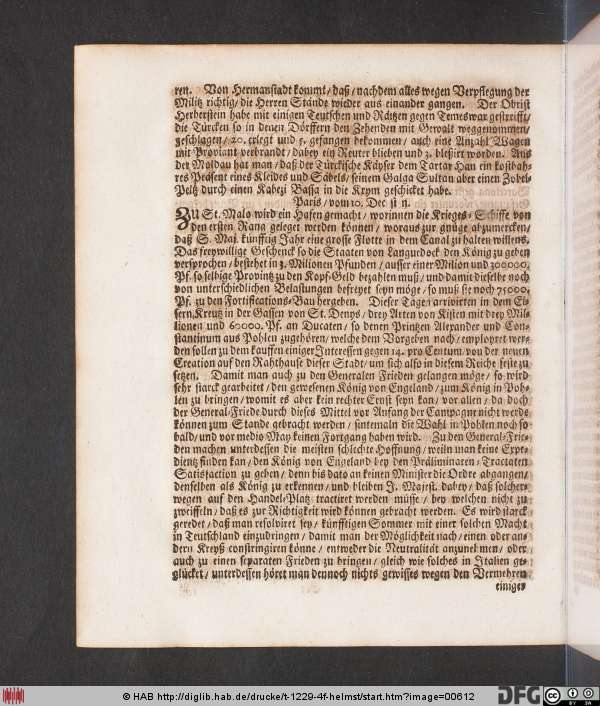 ren. Von Hermanstadt kommt/ daß/ nachdem alles wegen Verpflegung der
Militz richtig/ die Herren Stände wieder aus einander gangen. Der Obrist
Herberstein habe mit einigen Teutschen und Rätzen gegen Temeswar gestreifft/
die Türcken so in denen Dörffern den Zehenden mit Gewalt weggenommen/
geschlagen/ 20. erlegt und 5. gefangen bekommen/ auch eine Anzahl Wagen
mit Proviant verbrandt/ dabey ein Reuter blieben und 3. blessirt worden. Aus
der Moldau hat man/ daß der Türckische Käyser dem Tartar Han ein kostbah-
res Präsent eines Kleides und Säbels/ seinem Galga Sultan aber einen Zobel-
Peltz durch einen Kabezi Bassa in die Krym geschicket habe.
Paris/ vom 10. Dec st n.
ZU St. Malo wird ein Hafen gemacht/ worinnen die Krieges-Schiffe von
den ersten Rang geleget werden können/ woraus zur gnüge abzumercken/
daß S. Maj. künfftig Jahr eine grosse Flotte in dem Canal zu halten willens.
Das freywillige Geschenck so die Staaten von Languedock den König zu geben
versprochen/ bestehet in 3. Milionen Pfunden/ ausser einer Milion und 300000.
Pf. so selbige Provintz zu den Kopf-Geld bezahlen muß/ und damit dieselbe noch
von unterschiedlichen Belastungen befreyet seyn möge/ so muß sie noch 75000.
Pf. zu den Fortifications-Bau hergeben. Dieser Tage arrivirten in dem Ei-
sern Kreutz in der Gassen von St. Denys/ drey Arten von Kisten mit drey Mil-
lionen und 60000. Pf. an Ducaten/ so denen Printzen Alexander und Con-
stantinum aus Pohlen zugehören/ welche dem Vorgeben nach/ employret wer-
den sollen zu dem kauffen einiger Interessen gegen 14. pro Centum von der neuen
Creation auf den Rahthause dieser Stadt/ um sich also in diesem Reiche feste zu
setzen. Damit man auch zu den Generalen Frieden gelangen möge/ so wird
sehr starck gearbeitet/ den gewesenen König von Engeland/ zum König in Poh-
len zu bringen/ womit es aber kein rechter Ernst seyn kan/ vor allen/ da doch
der General-Friede durch dieses Mittel vor Anfang der Campagne nicht werde
können zum Stande gebracht werden/ sintemaln die Wahl in Pohlen noch so
bald/ und vor medio May keinen Fortgang haben wird. Zu den General-Frie-
den machen unterdessen die meisten schlechte Hoffnung/ weiln man keine Expe-
dientz finden kan/ den König von Engeland bey den Präliminaren-Tractaten
Satisfaction zu geben/ denn bis dato an keinen Minister die Ordre abgangen/
denselben als König zu erkennen/ und bleiben J. Majest. dabey/ daß solcher-
wegen auf den Handel-Platz tractiret werden müsse/ bey welchen nicht zu
zweiffeln/ daß es zur Richtigkeit wird können gebracht werden. Es wird starck
geredet/ daß man resolviret sey/ künfftigen Sommer mit einer solchen Macht
in Teutschland einzudringen/ damit man der Möglichkeit nach/ einen oder an-
dern Kreyß constringiren könne/ entweder die Neutralität anzunehmen/ oder
auch zu einen separaten Frieden zu bringen/ gleich wie solches in Italien ge-
glücket/ unterdessen höret man dennoch nichts gewisses wegen den Vermehren
einiger
© HAB http://diglib.hab.de/drucke/t-1229-4f-helmst/start.htm?image=00612
DFG